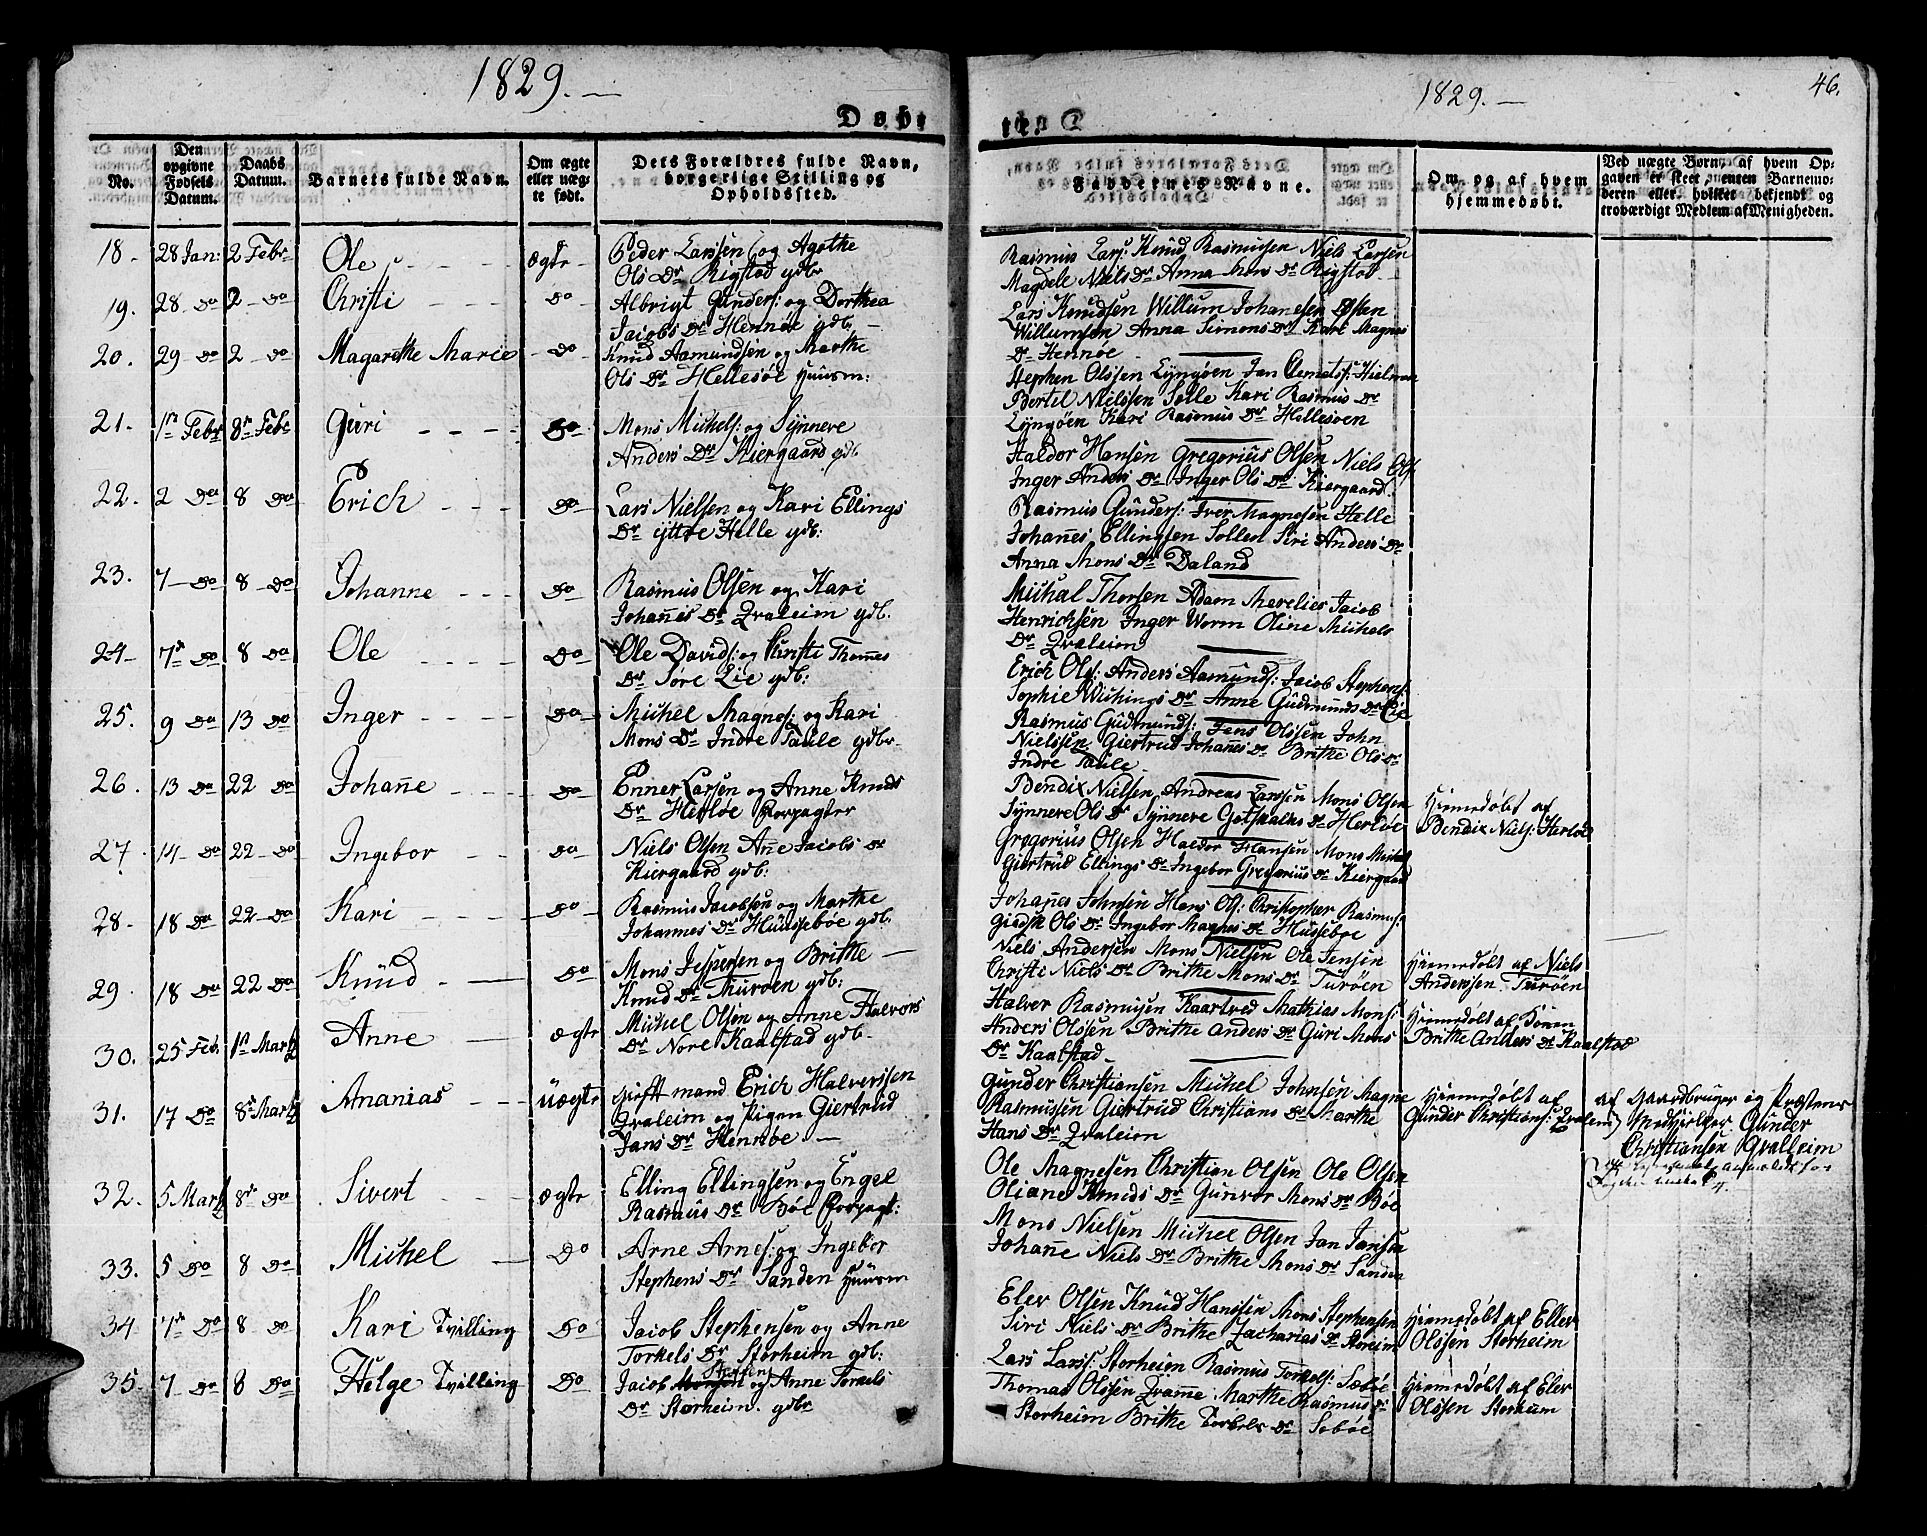 1829.
Døbt
No.
Den opgivne Fødsels Datum.
Daabs Datum.
Barnets fulde Navn.
Om ægte eller uægte født.
Dets Forældres fulde Navn, borgerlige Stilling og Opholdssted.
18. 28 Jan: 2 Febr Ole ægte Peder Larssen og Agathe
Ols Dr Rigstad gdbr
19. 28 do 2 do Christi do Albrigt Gunders: og Dorthea
Jacobs Dr Hennøe gdb
20. 29 do 2 do Magarethe Marie do Knud Aamundsen og Marthe
Ols Dr Hellesøe Huusm:
21. 1st Febr 8de Febr Guri do Mons Michels: og Synnere
Anders Dr Kiergaard gdb
22. 2 do 8 do Erich do Lars Nielsen og Kari Ellings
Dr yttre Helle gdb:
23. 7 do 8 do Johanne do Rasmus Olsen og Kari
Johañes Dr Qvaleim gdb.
24 7de do 8 do Ole do Ole Davids: og Christi Thomes
Dr Søre Lie gdb:
25. 9 do 13 do Inger do Michel Magnes: og Kari
Mons Dr Indre Taule gdbr
26. 13 do 22 do Johañe do Enner Larsen og Anne Knuds
Dr Herløe Forpagter
27. 14 do 22 do Ingebor do Niels Olsen Añe Jacobs Dr
Kiergaard gdb:
28. 18 do 22 do Kari do Rasmus Jacobsen og Marthe
Johannes Dr Huussebøe gdb.
29. 18 do 22 do Knud do Mons Jespersen og Brithe
Knud Dr Turøen gdb:
30. 25 Feb. 1st Martz Anne ægte Michel Olsen og Anne Halvors
Dr Nore Kaalstad gdb.
31. 17 do 8de Martz Ananias uægte gift mand Erich Halverssen
Qvaleim og Pigen Giertrud
Jans Dr Hennøe
32. 5 Martz 8de do Sivert ægte Elling Ellingsen og Engel
Rasmus Dr Bøe Forpagt:
33. 5 do 8 do Michel do Arne Arnes: og Ingebor
Stephens Dr Sanden Huusm
34 7de do 8 do Kari Tvilling do Jacob Stephensen og Anne
Torkels Dr Storheim gdb:
Steffens
35. 7 do 8 do Helge Tvilling do Jacob og Anne Torkels
Dr Storheim. gdbr
1829.
46.
Faddernes Navne.
Om og af hvem hjemmedøbt.
Ved uægte Børn, af hvem Opgaven er skeet, enten Barnemoderen eller hvilket bekjendt og troværdigt Medlem af Menigheden.
Rasmus Lars: Knud Rasmusen Niels Larsen
Magdele Niels Dr Anna Mons Dr Rigstad
Lars Knudsen Willum Johanesen Østen
Willumsen Anna Simons Dr Kari Magnes
Dr Hennøe
Stephen Olssen Lyngøen Jan Clemets: Hielmen
Bertel Nielssen Solle Kari Rasmus Dr
Lyngøen Kari Rasmus Dr Hellesøen
Haldor Hansen Gregorius Olsen Niels Ols
Inger Anders Dr Inger Ols Dr Kiergaard.
Rasmus Gunders: Iver Magnesen Helle
Johañes Ellingsen Sollen Siri Anders Dr
Anna Mons Dr Daland
Michal Thorsen Adam Merelies Jacob
Henrichsen Inger Worm Oline Michels
Dr Qvaleim
Erich Ols: Anders Aamunds: Jacob Stephens:
Sophie Dr Anne Gudmunds Dr Lie
Rasmus Gudmunds: Jens Olssen John
Nielssen Giertrud Johañes Dr Brithe Ols Dr
Indre Taule
Bendix Nielsen Andreas Larssen Mons Olsen Hiemedøbt af
Synnere Ols Dr Synnere Gotskalks Dr Herløe Bendix Niels: Herløe
Gregorius Olsen Haldor Hansen Mons Michels
Giertrud Ellings Dr Ingebor Gregorius Dr Kiergaard
Johañes Johnsen Hans Ols: Christopher Rasmus:
Ols Dr Ingebor Magnes Dr Hussebøe
Niels Andersen Mons Nielsen Ole Jensen Hiemedøbt af Niels
Christi Niels Dr Brithe Mons Dr Turøen Anderssen Turøen
Halver Rasmusen Kaartved Mathias Mons: Hiemedøbt af Konen
Anders Olssen Brithe Anders Dr Guri Mons Brithe Anders Dr Kaalstad
Dr Kaalstad
Gunder Christiansen Michel Johnsen Magne Hiemedøbt af af Gaardbruger og Præstens
Rasmussen Giertrud Christians Dr Marthe Gunder Christians: Qvaleim Medhielper Gunder
Hans Dr Qvaleim Christiansen Qvalleim
Ole Magnesen Christian Olsen Ole Olsen
Oliane Knuds Dr Gunvor Mons Dr Bøe
Mons Nielsen Michel Olsen Jan Jansen
Johañe Niels Dr Brithe Mons Dr Sanden
Eler Olsen Knud Hanssen Mons Stephensen Hiemedøbt af Eller
Siri Niels Dr Brithe Zacharias Dr Storeim Olssen Storheim
Lars Larss: Storheim Rasmus Torkels: Sæbøe Hiemedøbt af Eler
Thomas Olssen Qvame Marthe Rasmus Dr Olssen Storeum
Storheim Brithe Torkels Dr Sæbøe